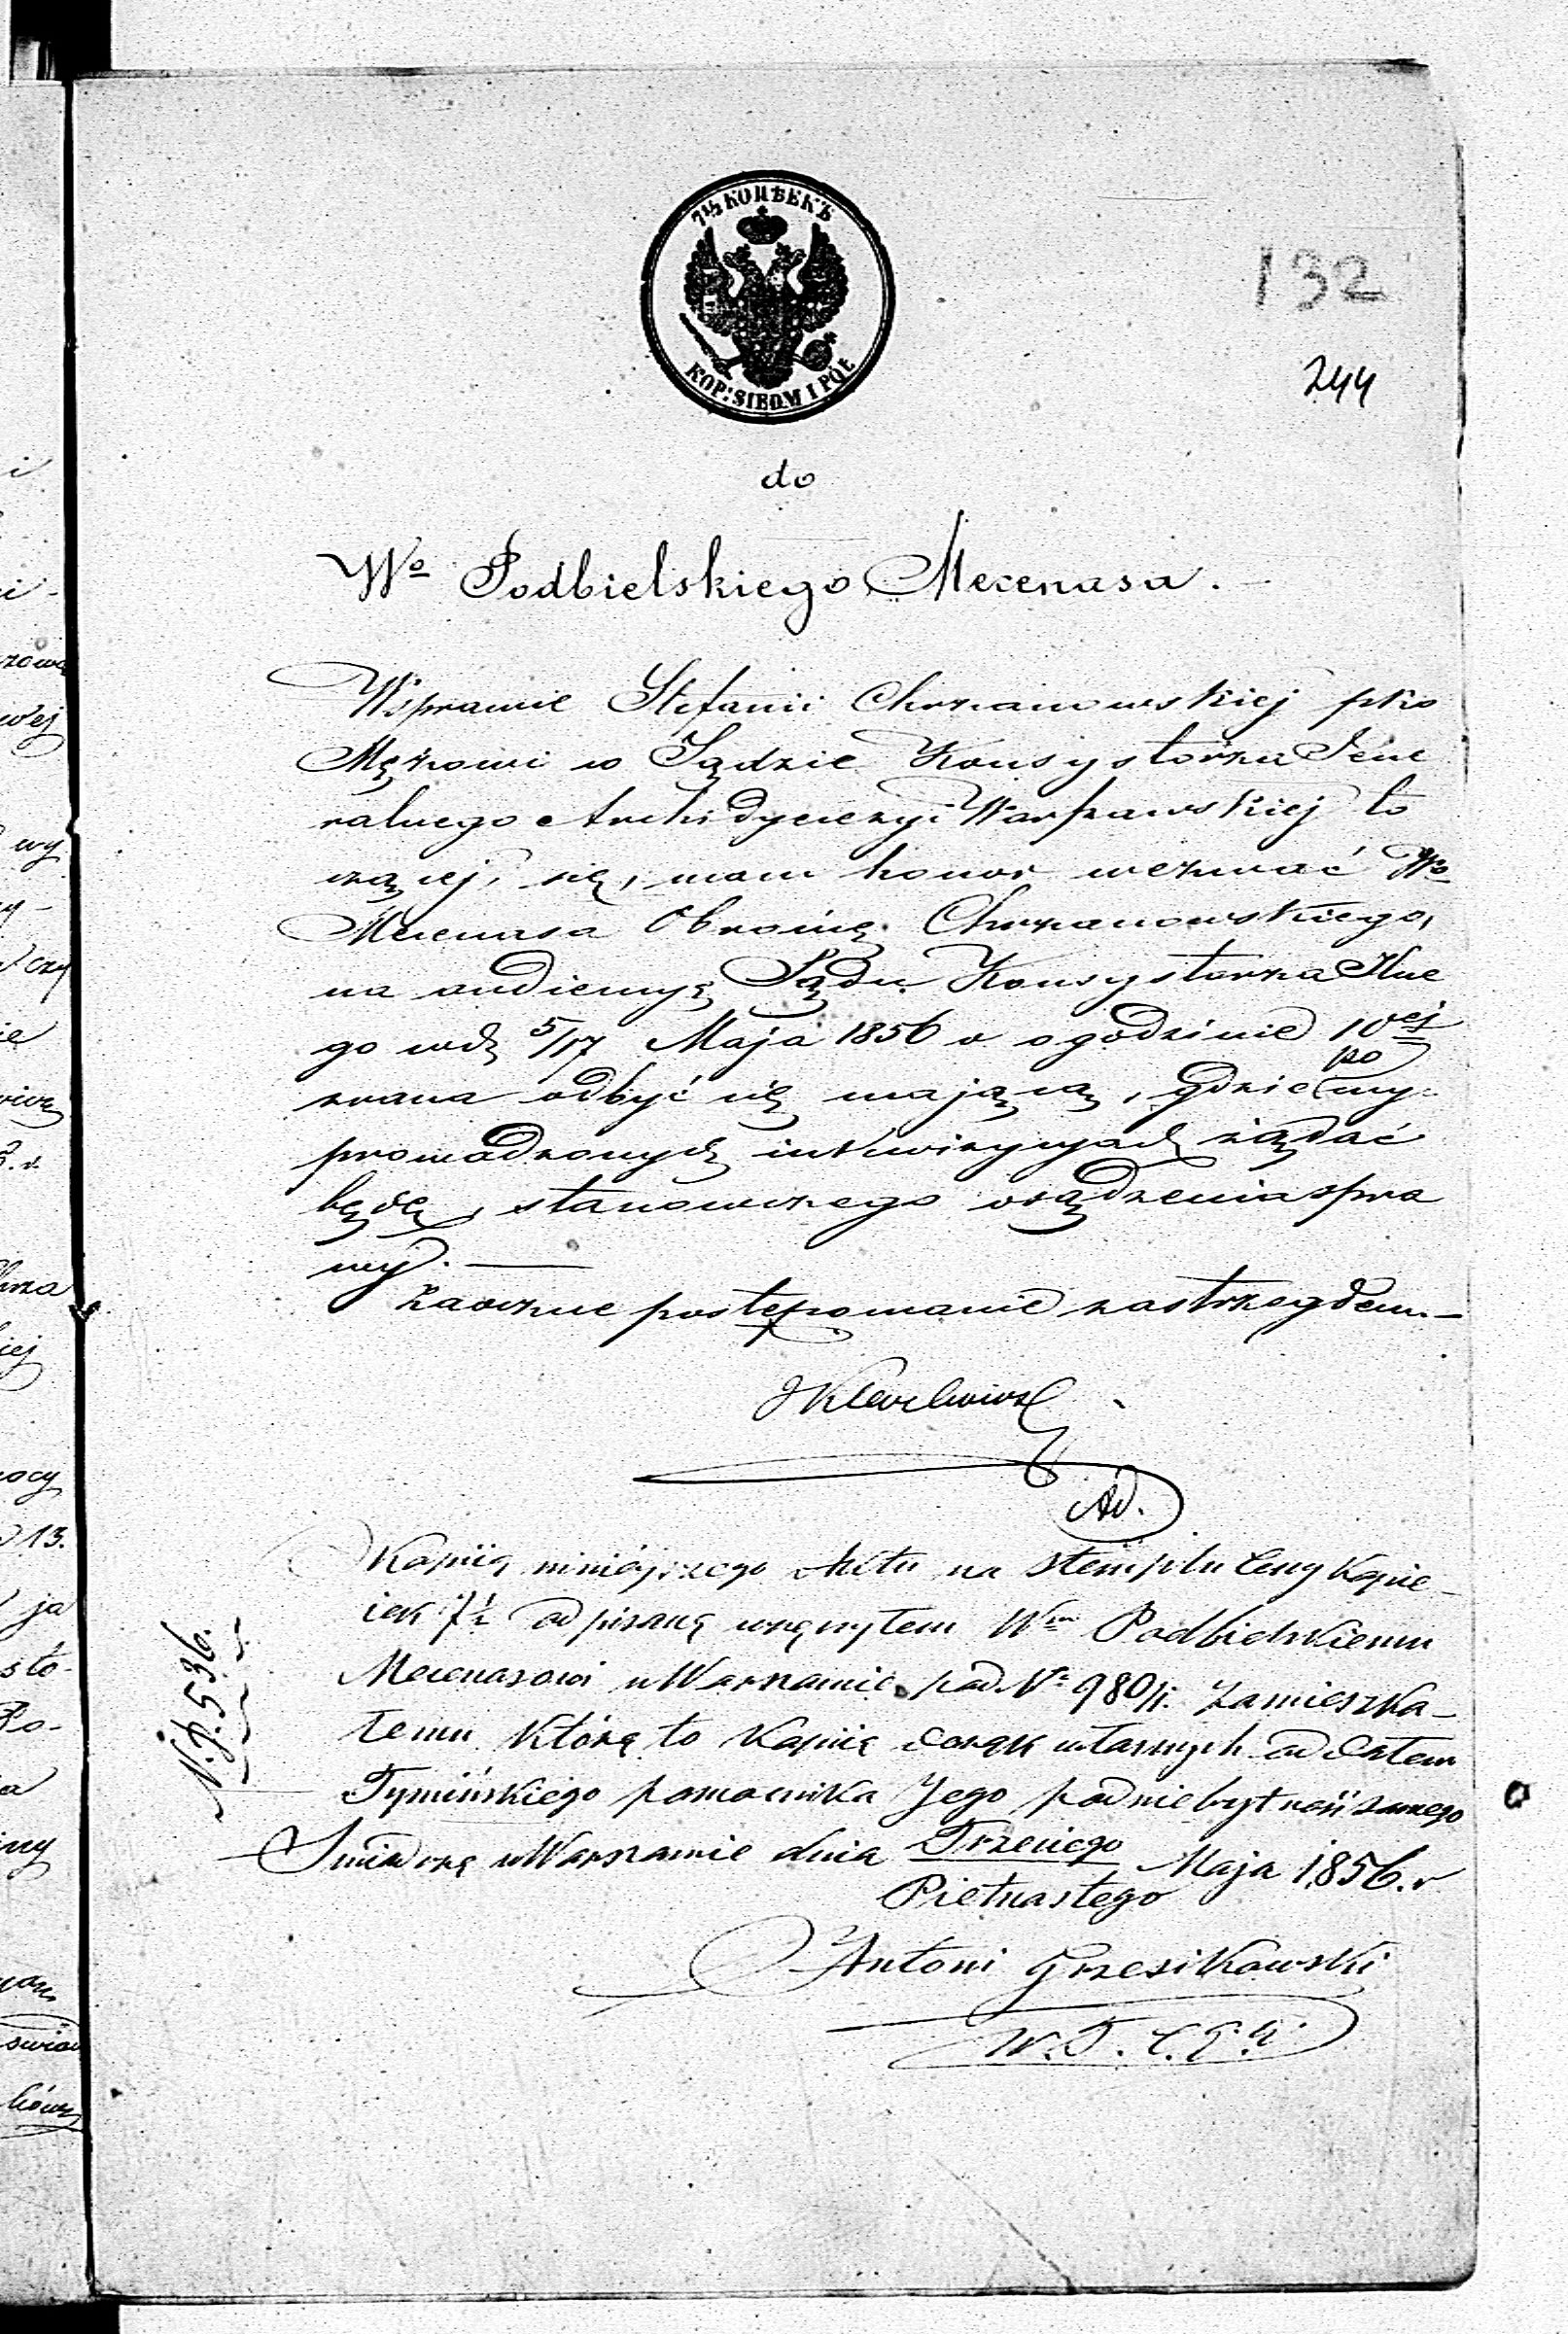 7½ КОПѢЕКЪ
KOP: SIEDM I PÓŁ
132
244
do
Wo Podbielskiego Mecenasa. -
W sprawie Stefanii Chrzanowskiej pko
Mężowi w Sądzie Konsystorza Jene
ralnego Archidyecezyi Warszawskiej to
czącej się, mam honor wezwać Wo
Mecenasa Obrońcę Chrzanowskiego,
na audiencyę Sądu Konsystorza Jlne
go w d. 5/17 Maja 1856 r o godzinie 10ej
zrana odbyć się mającą, gdzie po wy-
prowadzonych inkwizycyach żądać
będę, stanowczego osądzenia spra
wy. —
Zaoczne postępowanie zastrzegłem. -
Ad.
Kopiią niniejszego Aktu na stemplu Ceny Kopie-
iek 7½ odpisaną wręczyłem Wmu Podbielskiemu
Mecenasowi w Warszawie pod No 980/1. zamieszka-
łemu którą to Kopiię do rąk własnych oddałem
Tymińskiego pomocnika Jego pod niebytność samego
Świadczę w Warszawie dnia Trzeciego Maja 1856. r
Pietnastego
N. p. 536.
Antoni Grzesikowski